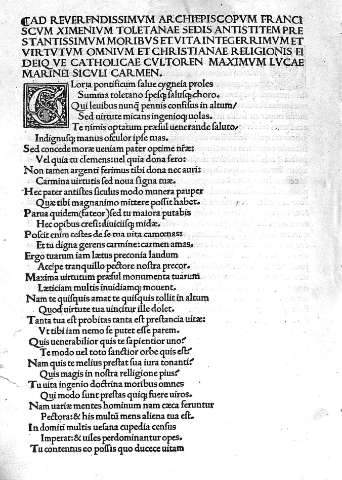 ⸿AD REVERENDISSIMVM ARCHIEPISCOPVM FRANCI
SCVM XIMENIVM TOLETANAE SEDIS ANTISTITEM PRE
STANTISSIMVM MORIBVS ET VITA INTEGERRIMVM ET
VIRTVTVM OMNIVM ET CHRISTIANAE RELIGIONIS FI
DEIQVE CATHOLICAE CVLTOREN MAXIMVM LVCAE
MARINEI SICVLI CARMEN.
GLora pontificum salue cygneia proles
Summa toletano spesq; salusq; choro.
Qui leuibus nunq̃ pennis confisus in altum
Sed virtute micans ingenioq; uolas.
Te nimis optatum præsul uenerande saluto
Indignusq; manus osculor ipse tuas.
Sed concede moræ ueniam pater optime nr̃æ:
Vel quia tu clemens: uel quia dona fero:
Non tamen argenti ferimus tibi dona nec auri:
Carmina uirtutis sed noua signa tuæ.
Hec pater antistes siculus modo munera pauper
Quæ tibi magnanimo mittere possit habet.
Parua quidem (fateor) sed tu maiora putabis
Hec opibus cresi: diuiciisq; midæ.
Poscit enim testes de se tua uita camœnas:
Et tu digna gerens carmine: carmen amas.
Ergo tuarum iam lætus preconia laudum
Accipe tranquillo pectore nostra precor.
Maxima uirtutum præsul monumenta tuarum
Læticiam multis inuidiamq; mouent.
Nam te quisquis amat te quisquis tollit in altum
Quod uirtute tua uincitur ille dolet.
Tanta tua est probitas tanta est prestancia uitæ:
Vt tibi iam nemo se putet esse parem.
Quis uenerabilior quis te sapientior uno?
Te modo uel toto sanctior orbe quis est?
Nam quis te melius prestat sua iura tonanti?
Quis magis in nostra relligione pius?
Tu uita ingenio doctrina moribus omnes
Qui modo sunt prestas quiq; fuere uiros.
Nam uariæ mentes hominum nam cæca feruntur
Pectora: & his multũ mens aliena tua est.
In domiti multis uesana cupedia census
Imperat: & uiles perdominantur opes.
Tu contentus eo possis quo ducere uitam